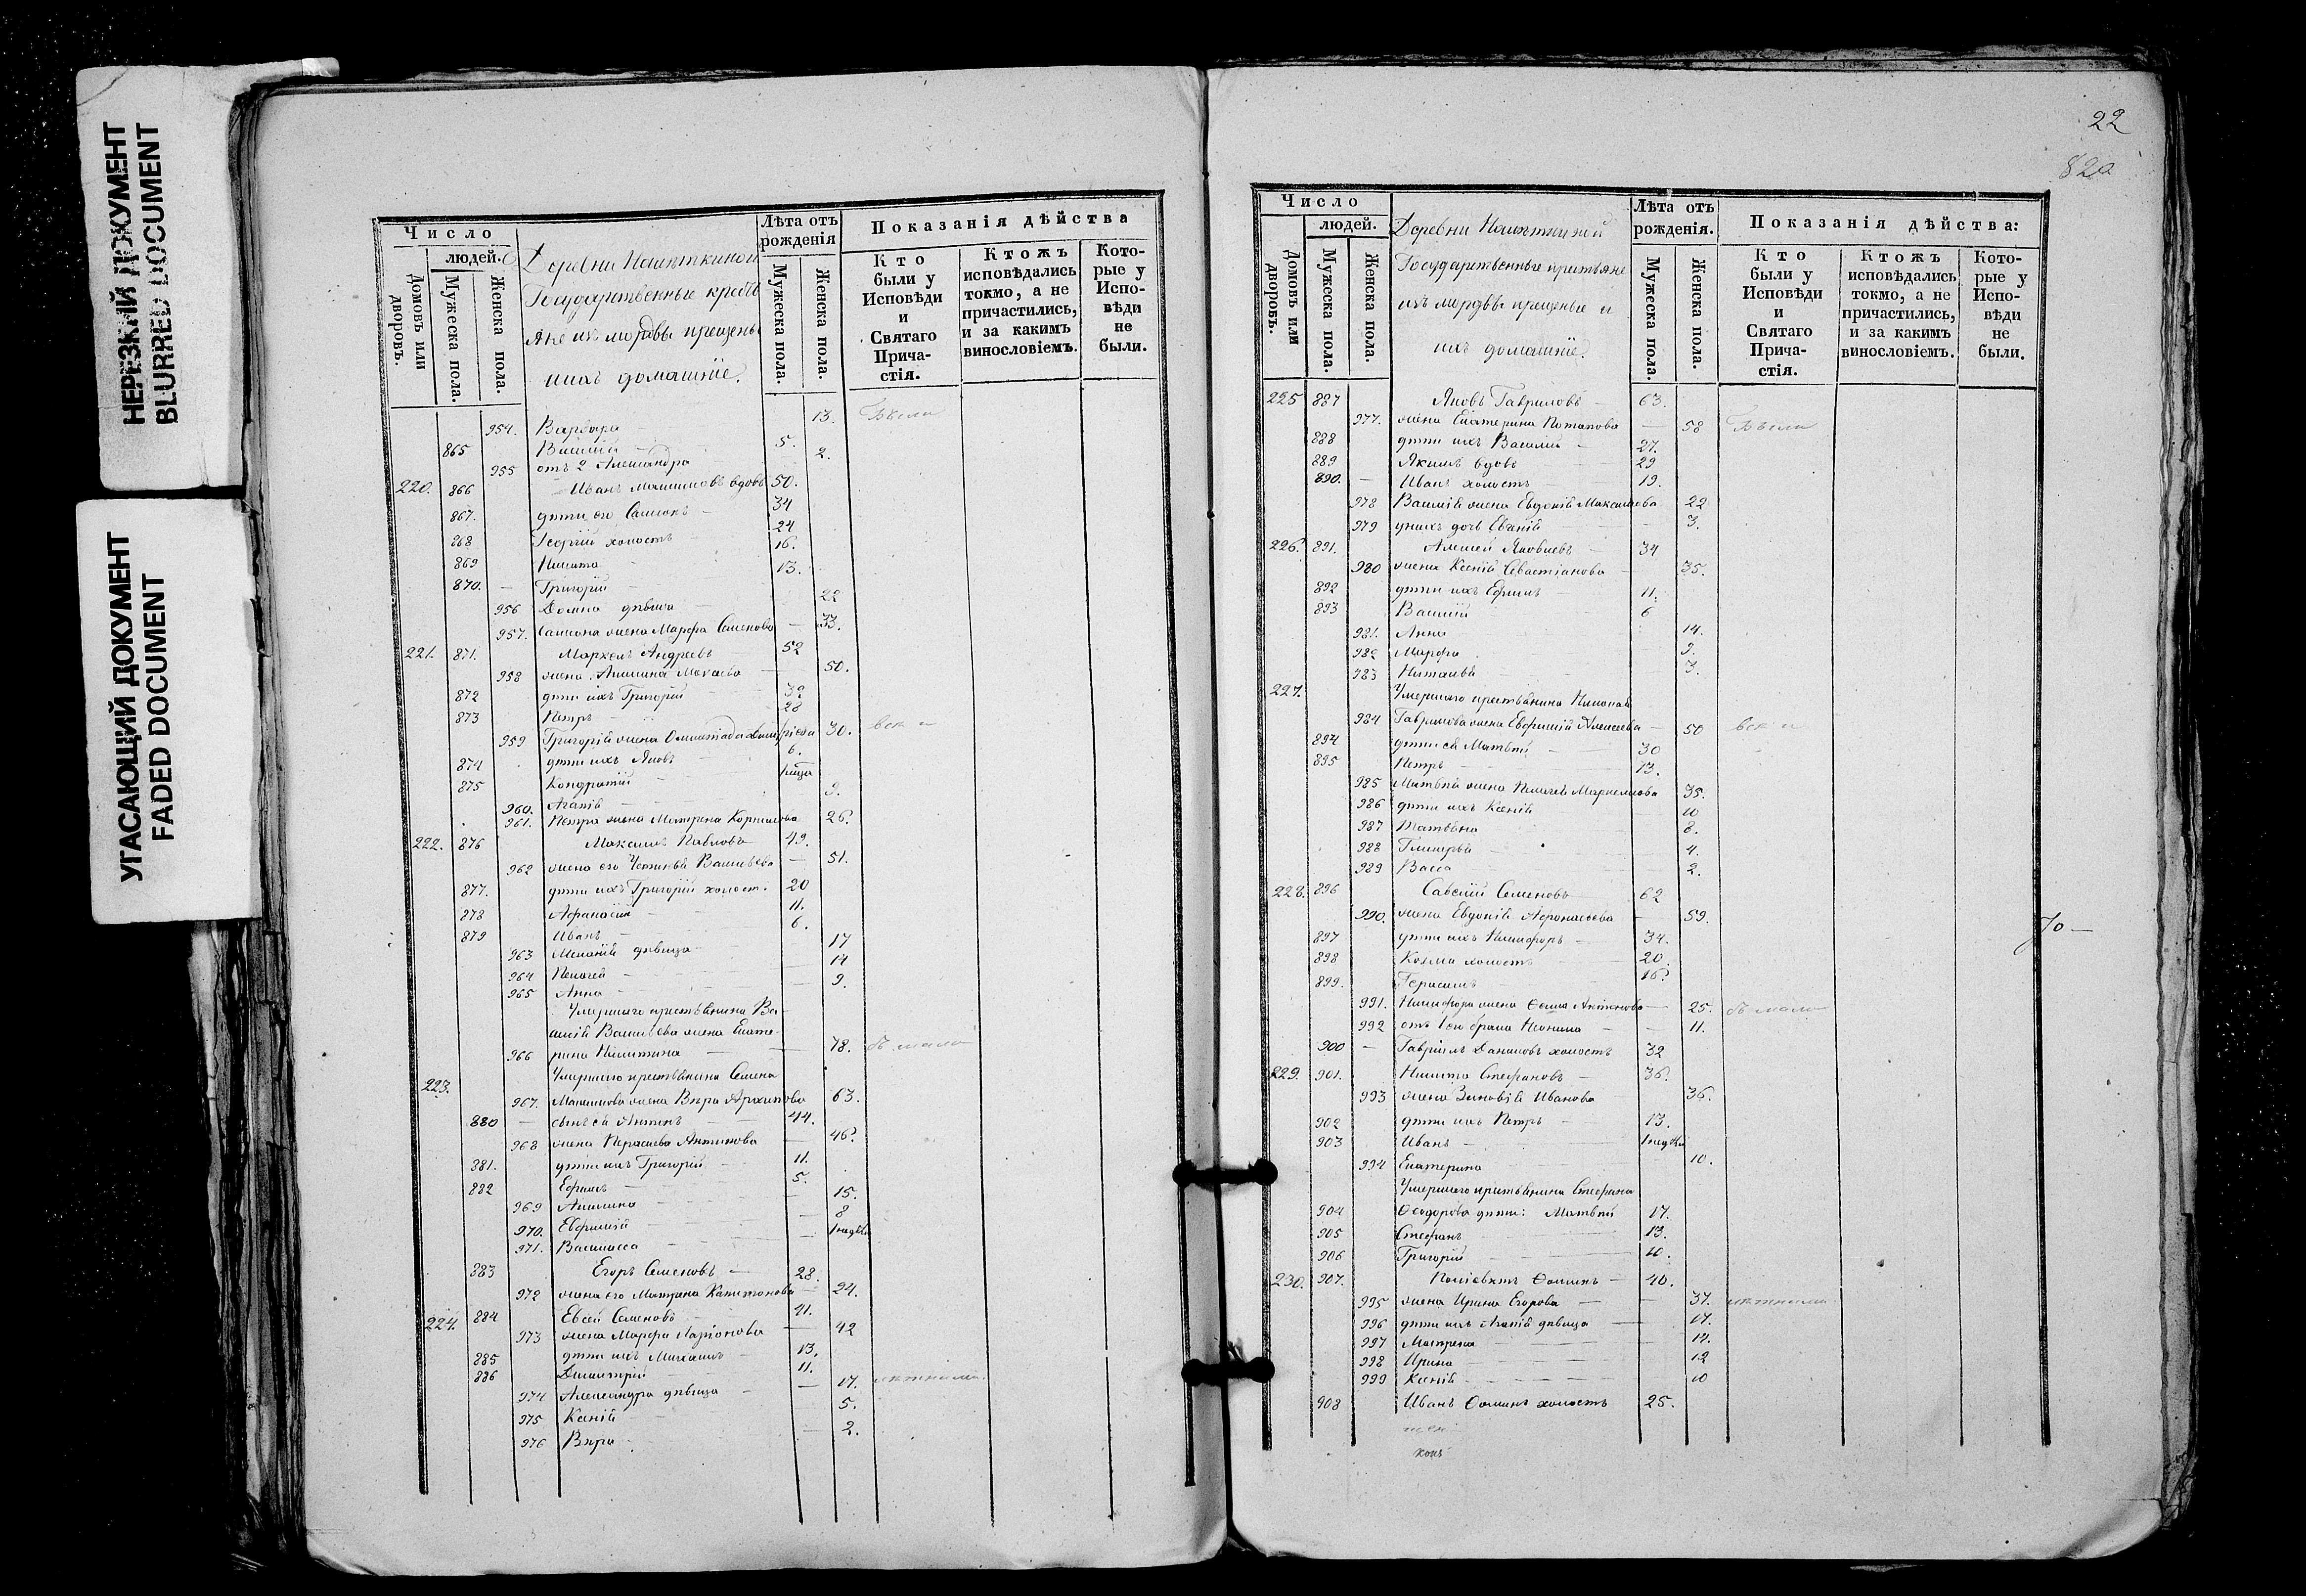 НЕРЕЗКИЙ ДОКУМЕНТ
BLURRED DOCUMENT
УГАСАЮЩИЙ ДОКУМЕНТ
FADED DOCUMENT
Число
людей.
Домовъ или дворовъ.
Мужеска пола.
Женска пола.
Деревни
Государственные кресть
яне изъ мордвы крещены
и ихъ домашніе.
Лѣта отъ рожденія
Мужеска пола.
Женска пола.
Показанія дѣйства
Кто были у Исповѣди и Святаго Причастія.
Ктожъ исповѣдались токмо, а не причастились, и за какимъ винословіемъ.
Которые у Исповѣди не были.
954. Варвара 13. Были
865 Василій 5.
955 отъ 2 Александра 2.
220. 866 Иванъ вдовъ 50.
867. дѣти его Самсонъ 34
868 Георгій холостъ 24
869 Никита 16.
870. Григорій 13.
956 Домна дѣвица 22
957. Самсона жена Марѳа Семенова 33.
221. 871. Маркелъ Андреевъ 52
958 жена Акилина 50.
872 дѣти ихъ Григорій 32
873 Петръ 28
959 Григорія жена 30.
874 дѣти ихъ Яковъ 6.
875 Кондратій 1 года
960. Агапія 9.
961. Петра жена Матрена 26.
222. 876 Максимъ Павловъ 49.
962 жена его Васильева 51.
877. дѣти ихъ Григорій холост. 20
878 Аѳанасій 11.
879 Иванъ 6.
963 Меланія дѣвица 17
964 Пелагея 14
965 Анна 9.
Умершаго крестьянина Ва-
силія Васильева жена Екате-
966 рина Никитина 78.
223. Умершаго крестьянина Семена
967. жена Вѣра Архипова 63.
880 сынъ ея Антонъ 44.
968 жена Антипова 46.
881. дѣти ихъ Григорій 11.
882 Ефимъ 5.
969 Акилина 15.
970. Евфимія 8
971. Василисса 1 недѣли
883 Егоръ Семеновъ 28.
972 жена его Матрена Капитонова 24.
224. 884 Евсей Семеновъ 41.
973 жена Марѳа Ларіонова 42
885 дѣти ихъ Михаилъ 13.
886 Димитрій 11.
974 Александра дѣвица 17.
975 Ксенія 5.
976 Вѣра 2.
22
820
Число
людей.
Домовъ или дворовъ.
Мужеска пола.
Женска пола.
Деревни
Государственные крестьяне
изъ мордвы крещеные и
ихъ домашніе.
Лѣта отъ рожденія.
Мужеска пола.
Женска пола.
Показанія дѣйства:
Кто были у Исповѣди и Святаго Причастія.
Ктожъ исповѣдались токмо, а не причастились, и за какимъ винословіемъ.
Которые у Исповѣди не были.
225 887 Яковъ Гавриловъ 63.
977. жена Екатерина Потапова 58 Были
888 дѣти ихъ Василій 27.
889 Якимъ вдовъ 29
890. Иванъ холостъ 19.
978 Василія жена Евдокія Максимова 22
979 у нихъ дочь 3.
226. 891. Алексей Яковлевъ 34
980 жена Ксенія Севастіанова 35.
892 дѣти ихъ Ефимъ 11.
893 Василій 6
981. Анна 14.
982 Марѳа 9.
983 Наталья 3.
227. Умершаго крестьянина Николая
984 Гаврилова жена Евфимія Алексеева 50
894 дѣти ея Матвей 30
895 Петръ 13.
985 Матвея жена Пелагея Маркелова 35.
986 дѣти ихъ Ксенія 10
987 Татьяна 8.
988 Гликерья 4.
989 Васса 2.
228. 896 Савелій Семеновъ 62
990. жена Евдокія Аѳонасьева 59.
897 дѣти ихъ Никифоръ 34.
898 Козма холостъ 20.
899. Герасимъ 16.
991. Никифора жена Ѳекла Антонова 25.
992 отъ 1го брака Неонила 11.
900 Гавріилъ Даниловъ холостъ 32
229. 901. Никита Стефановъ 36.
993 жена Зиновія Иванова 36.
902 дѣти ихъ Петръ 13.
903 Иванъ 1 недѣли
994 Екатерина 10.
Умершаго крестьянина Стефана
904 Ѳеодорова дѣти: Матвей 17.
905 Стефанъ 13.
906 Григорій 10.
230. 907. Поліевктъ Ѳоминъ 40.
995 жена Ирина Егорова 37.
996 дѣти ихъ Агапія дѣвица 17.
997 Матрена 14.
998 Ирина 12
999 Ксенія 10
908 Иванъ Ѳоминъ холостъ 25.